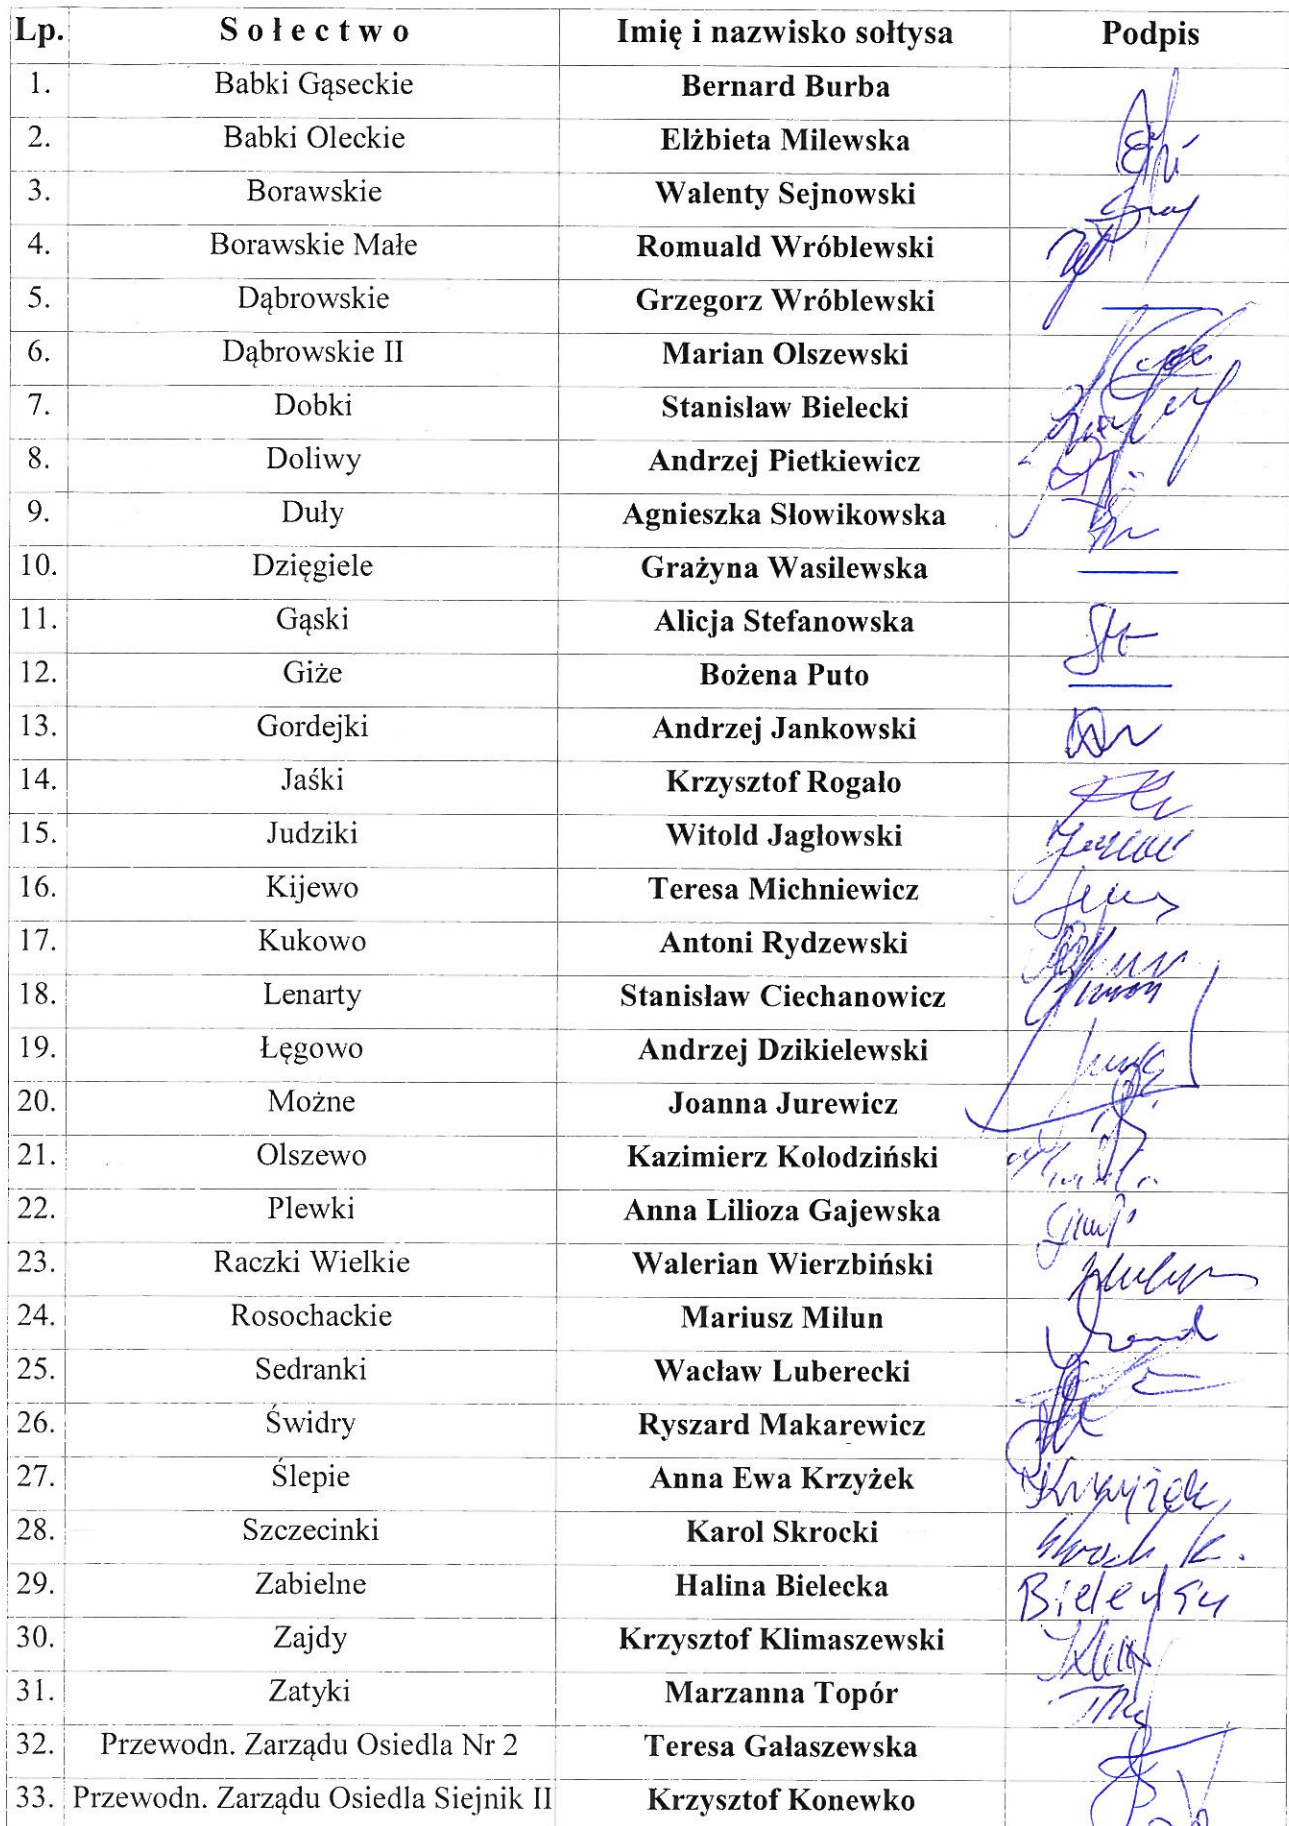 Lp. Sołectwo Imię i nazwisko sołtysa Podpis
1. Babki Gąseckie Bernard Burba
2. Babki Oleckie Elżbieta Milewska
3. Borawskie Walenty Sejnowski
4. Borawskie Małe Romuald Wróblewski
5. Dąbrowskie Grzegorz Wróblewski
6. Dąbrowskie II Marian Olszewski
7. Dobki Stanisław Bielecki
8. Doliwy Andrzej Pietkiewicz
9. Duły Agnieszka Słowikowska
10. Dzięgiele Grażyna Wasilewska
11. Gąski Alicja Stefanowska
12. Giże Bożena Puto
13. Gordejki Andrzej Jankowski
14. Jaśki Krzysztof Rogało
15. Judziki Witold Jagłowski
16. Kijewo Teresa Michniewicz
17. Kukowo Antoni Rydzewski
18. Lenarty Stanisław Ciechanowicz
19. Łęgowo Andrzej Dzikielewski
20. Możne Joanna Jurewicz
21. Olszewo Kazimierz Kołodziński
22. Plewki Anna Lilioza Gajewska
23. Raczki Wielkie Walerian Wierzbiński
24. Rosochackie Mariusz Milun
25. Sedranki Wacław Luberecki
26. Świdry Ryszard Makarewicz
27. Ślepie Anna Ewa Krzyżek Krzyżek
28. Szczecinki Karol Skrocki
29. Zabielne Halina Bielecka
30. Zajdy Krzysztof Klimaszewski
31. Zatyki Marzanna Topór
32. Przewodn. Zarządu Osiedla Nr 2 Teresa Gałaszewska
33. Przewodn. Zarządu Osiedla Siejnik II Krzysztof Konewko